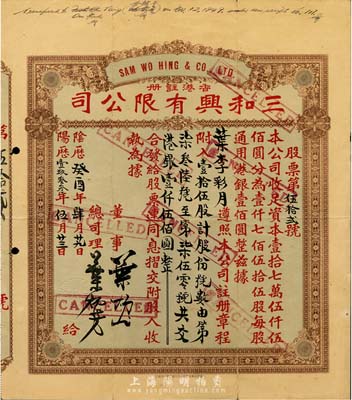 SAM WO HING & CO., LTD.
香港註册
三和興有限公司
股票第伍拾弍號
本公司收足資本壹拾七萬伍仟伍
佰圓分為壹仟七佰伍拾伍股每股
通用港銀壹佰圓整兹據
葉李彩月遵照本公司註册章程
附入壹拾伍股計股份號數由第
柒叁陸號至第柒伍零號共交
港銀壹仟伍佰圓整
合發給股票連同息摺交附股人收
執為據
董事
總司理
陰歷癸酉年肆月廿九日
陽歷壹玖叁叁年伍月廿三日
給
CANCELLED
CANCELLED
上海陽明拍賣